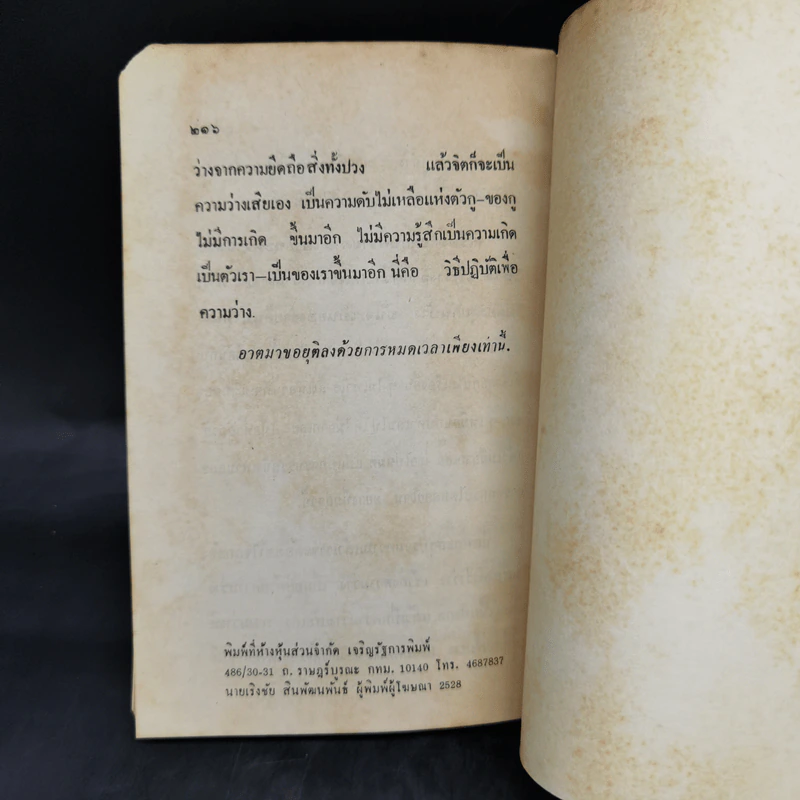 ๒๑๖
ว่างจากความยึดถือสิ่งทั้งปวง แล้วจิตก็จะเป็น
ความว่างเสียเอง เป็นความดับไม่เหลือแห่งตัวกู-ของกู
ไม่มีการเกิด ขึ้นมาอีก ไม่มีความรู้สึกเป็นความเกิด
เป็นตัวเรา—เป็นของเราขึ้นมาอีก นี่คือ วิธีปฏิบัติเพื่อ
ความว่าง.
อาตมาขอยุติลงด้วยการหมดเวลาเพียงเท่านี้.
พิมพ์ที่ห้างหุ้นส่วนจำกัด เจริญรัฐการพิมพ์
486/30-31 ถ. ราษฎร์บูรณะ กทม. 10140 โทร. 4687837
นายเริงชัย สินพัฒนพันธ์ ผู้พิมพ์ผู้โฆษณา 2528